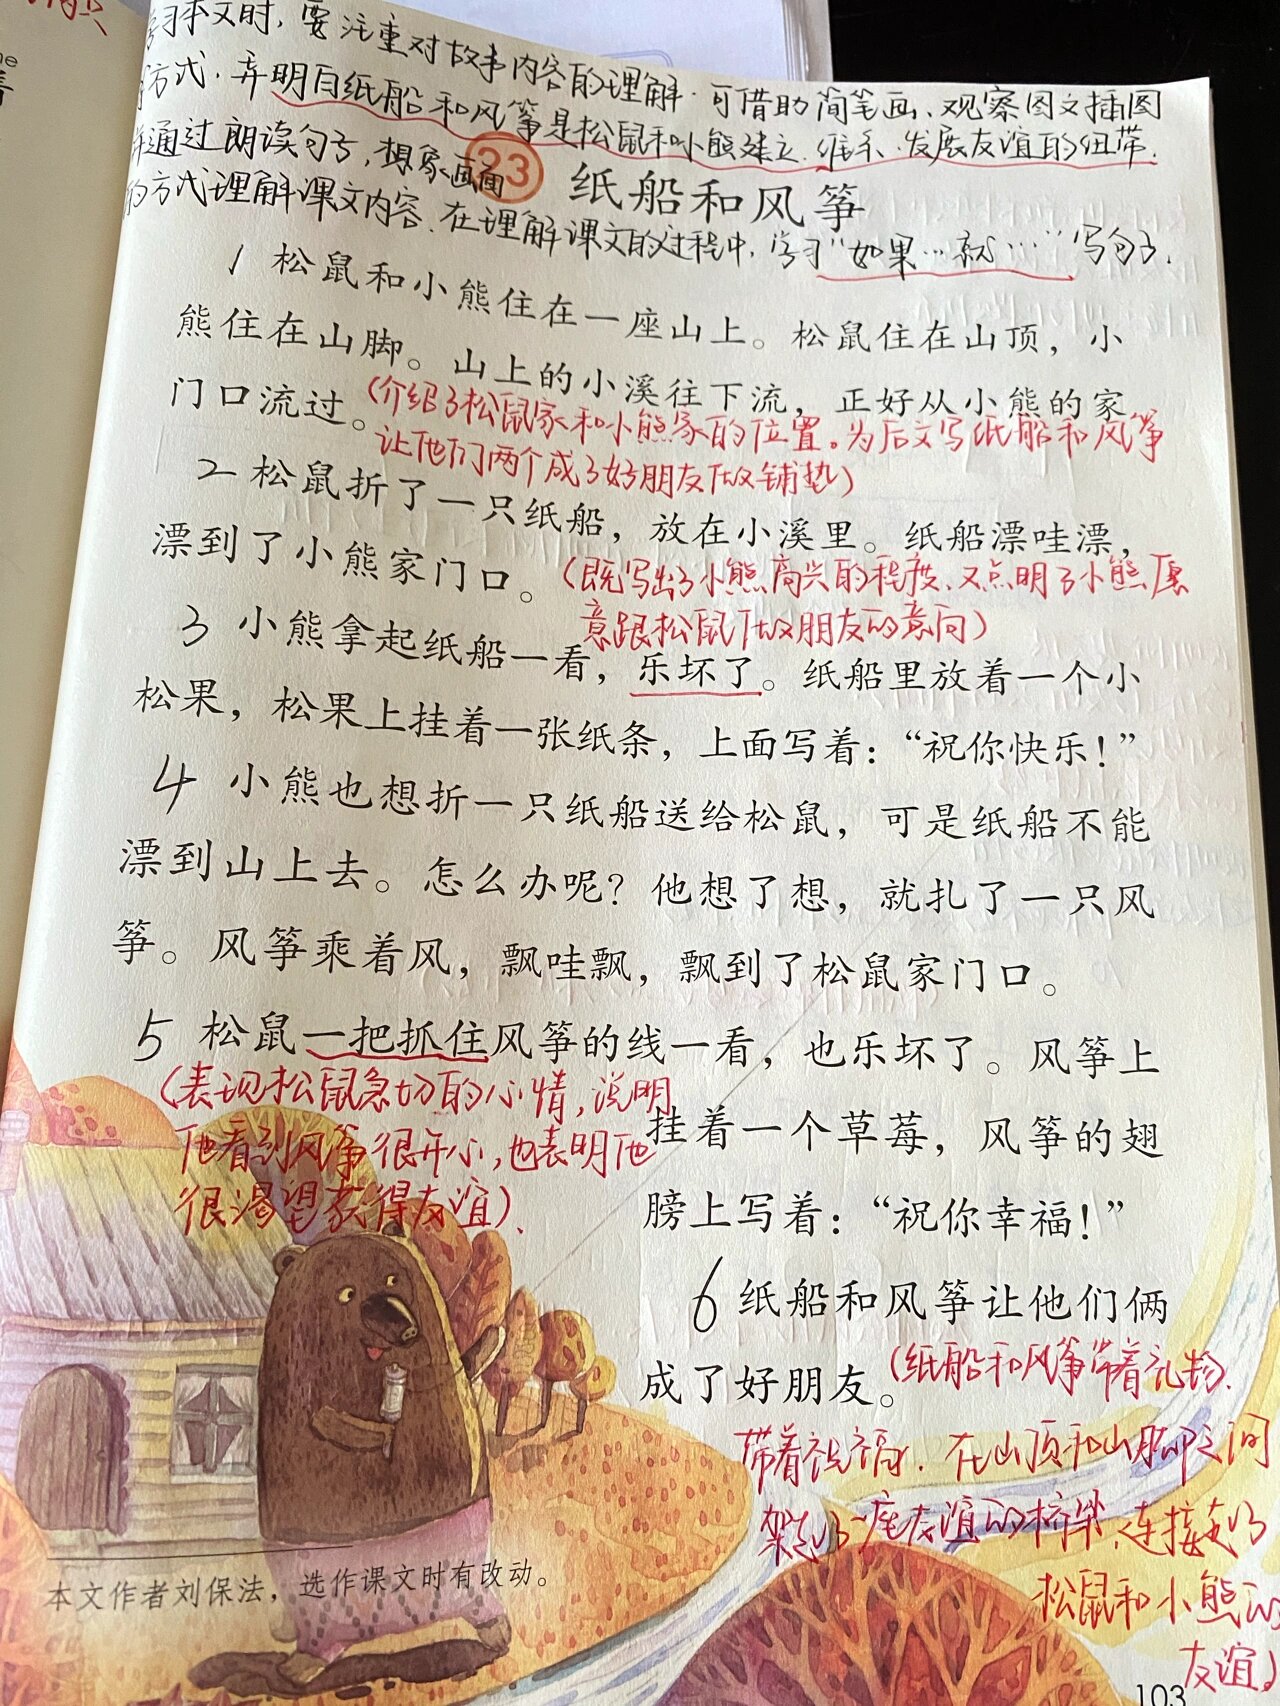 学习本文时,要注重对故事内容的理解.可借助简笔画、观察图文插图
方式.弄明白纸船和风筝是松鼠和小熊建立.维系.发展友谊的纽带.
并通过朗读句子,想象画面
23
纸船和风筝
的方式理解课文内容.在理解课文的过程中,学习“如果…就…”写句子.
1 松鼠和小熊住在一座山上。松鼠住在山顶,小
熊住在山脚。山上的小溪往下流,正好从小熊的家
门口流过。
(介绍了松鼠家和小熊家的位置。为后文写纸船和风筝
让他们两个成了好朋友做铺垫)
2 松鼠折了一只纸船,放在小溪里。纸船漂哇漂,
漂到了小熊家门口。
(既写出了小熊高兴的程度、又点明了小熊愿
意跟松鼠做朋友的意向)
3 小熊拿起纸船一看,乐坏了。纸船里放着一个小
松果,松果上挂着一张纸条,上面写着:“祝你快乐!”
4 小熊也想折一只纸船送给松鼠,可是纸船不能
漂到山上去。怎么办呢?他想了想,就扎了一只风
筝。风筝乘着风,飘哇飘,飘到了松鼠家门口。
5 松鼠一把抓住风筝的线一看,也乐坏了。风筝上
(表现松鼠急切的心情,说明
他看到风筝很开心,也表明他
很渴望获得友谊)、
挂着一个草莓,风筝的翅
膀上写着:“祝你幸福!”
6 纸船和风筝让他们俩
成了好朋友。
(纸船和风筝带着礼物、
带着祝福、在山顶和山脚之间
架起了一座友谊的桥梁、连接起了
松鼠和小熊的
友谊)
本文作者刘保法,选作课文时有改动。
103